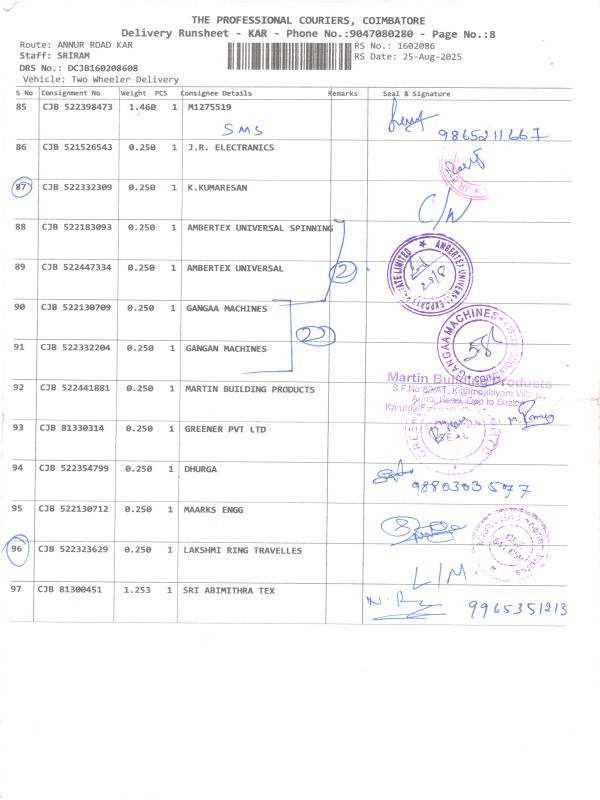 THE PROFESSIONAL COURIERS, COIMBATORE
Delivery Runsheet - KAR - Phone No.:9047080280 - Page No.:8
Route: ANNUR ROAD KAR RS No.: 1602086
Staff: SRIRAM RS Date: 25-Aug-2025
DRS No.: DCJB160208608
Vehicle: Two Wheeler Delivery
S No Consignment No Weight PCS Consignee Details Remarks Seal & Signature
85 CJB 522398473 1.460 1 M1275519
SMS 9865211667
86 CJB 521526543 0.250 1 J.R. ELECTRONICS
87 CJB 522332309 0.250 1 K.KUMARESAN
C/N
88 CJB 522183093 0.250 1 AMBERTEX UNIVERSAL SPINNING
89 CJB 522447334 0.250 1 AMBERTEX UNIVERSAL 2
AMBERTEX UNIVERSAL EXPORTS PRIVATE LIMITED
25/8
90 CJB 522130709 0.250 1 GANGAA MACHINES
2
91 CJB 522332204 0.250 1 GANGAN MACHINES
GANGAA MACHINES
92 CJB 522441881 0.250 1 MARTIN BUILDING PRODUCTS
Martin Building Products
S.F.No:89/A1, Kattampalayam Village,
Annur Road, Opp to Suzlon
93 CJB 81330314 0.250 1 GREENER PVT LTD
SEAL
94 CJB 522354799 0.250 1 DHURGA
9880303577
95 CJB 522130712 0.250 1 MAARKS ENGG
96 CJB 522323629 0.250 1 LAKSHMI RING TRAVELLES
L/M
97 CJB 81300451 1.253 1 SRI ABIMITHRA TEX
9965351213